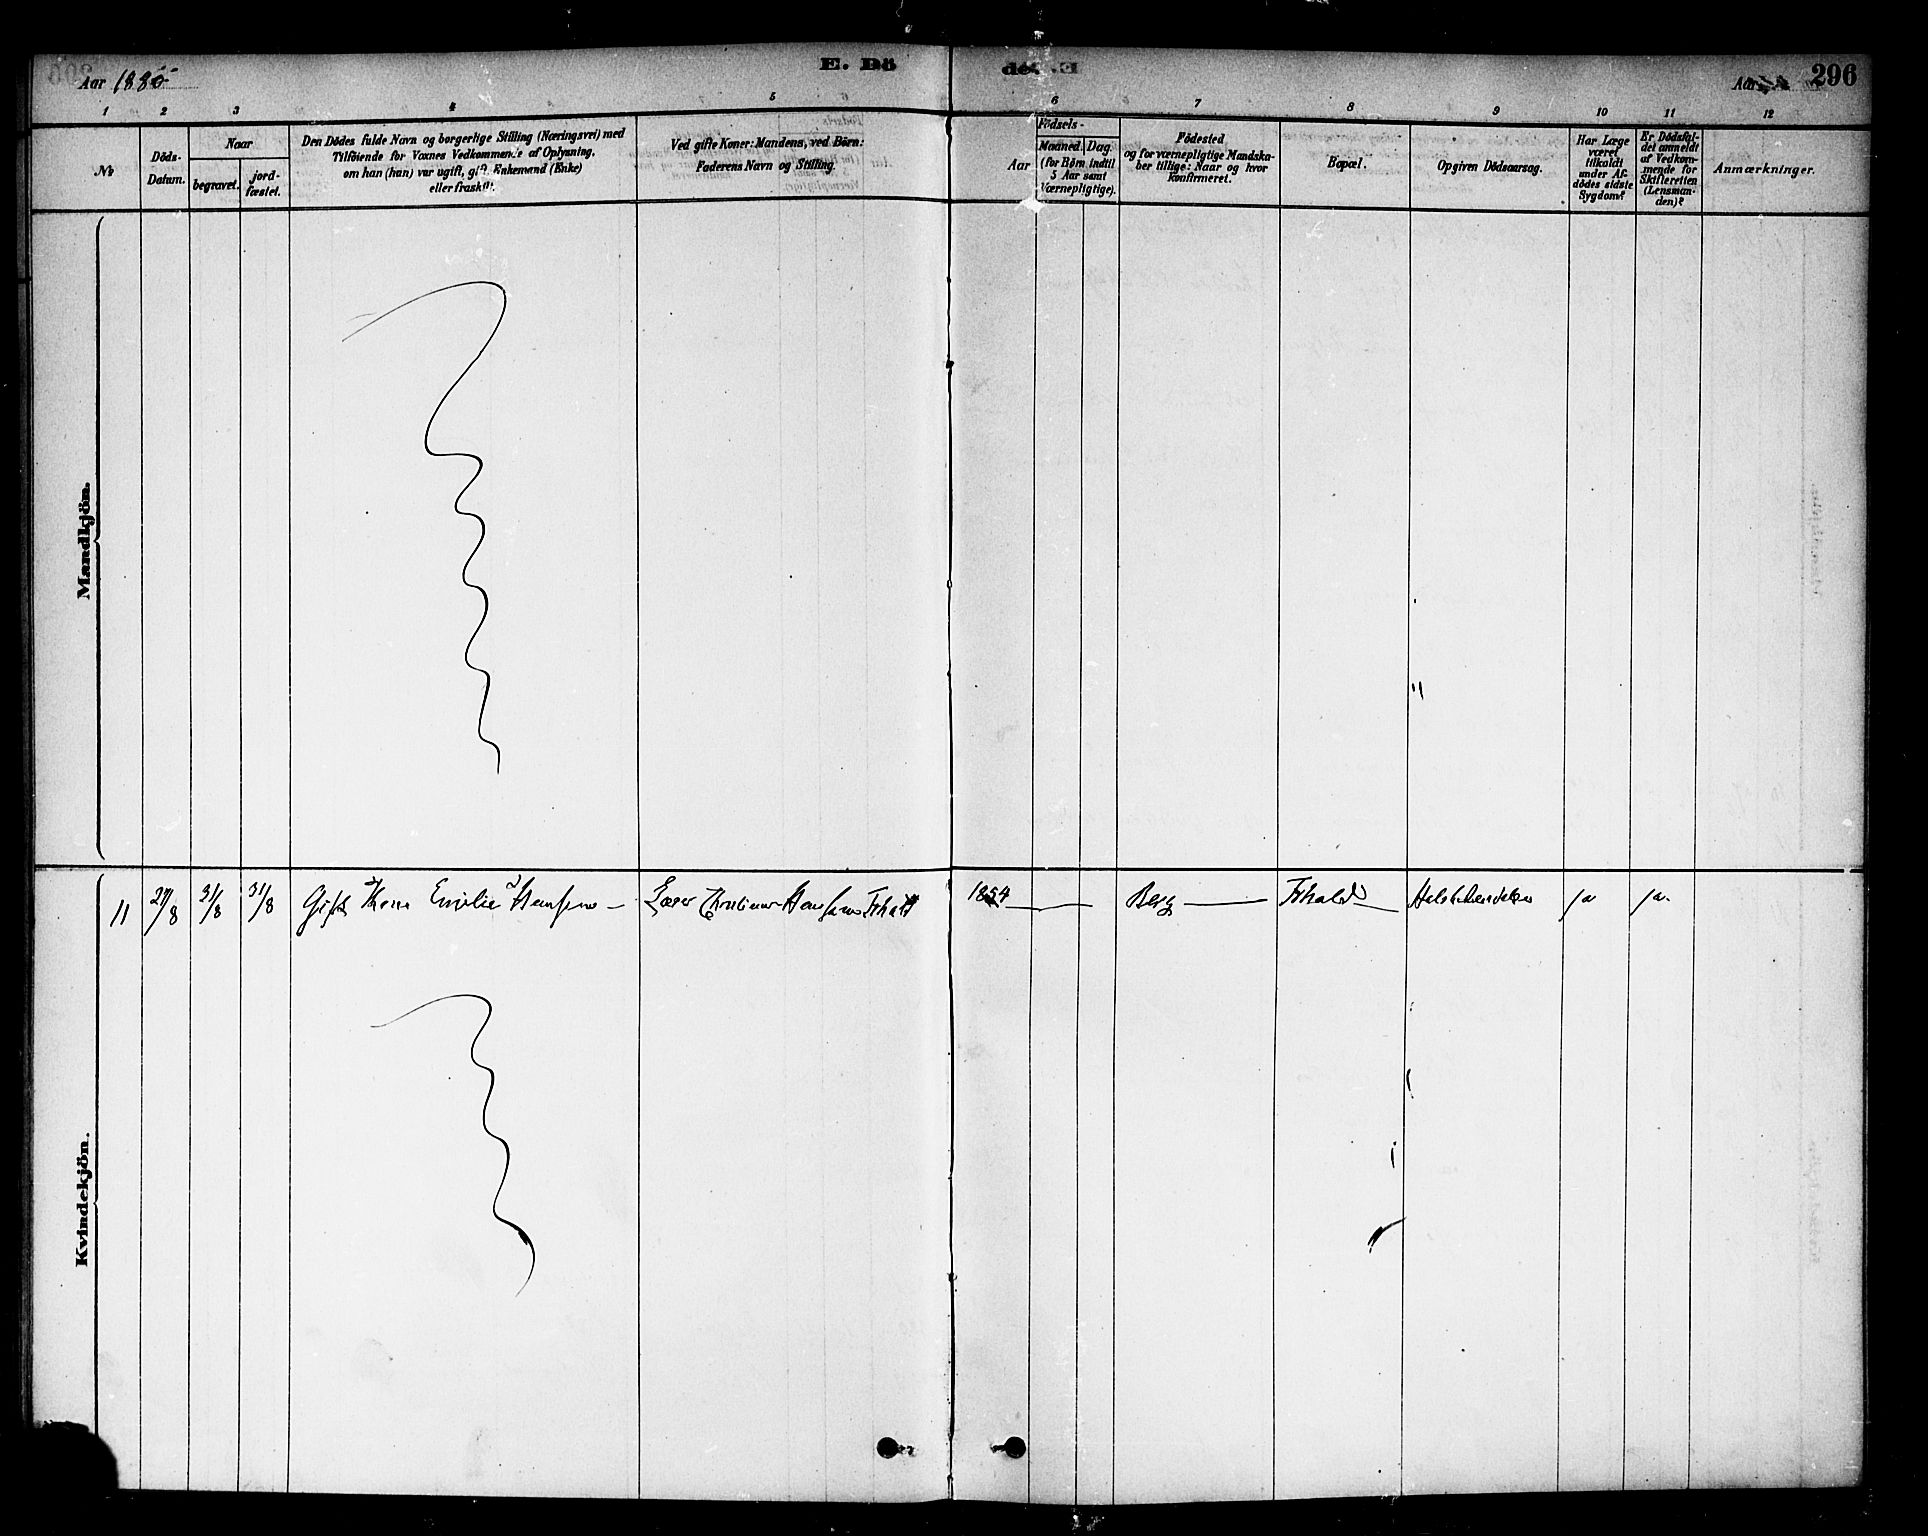 Aar 1880
E. Dö
de. E
Aar
296
1 2 3 4 5 6 7 8 9 10 11 12
№
Döds-
Datum.
Naar
begravet.
jord-
fæstet.
Den Dödes fulde Navn og borgerlige Stilling (Næringsvei) med
Tilföiende for Voxnes Vedkommende af Oplysning,
om han (hun) var ugift, gift, Enkemand (Enke)
eller fraskilt.
Ved gifte Koner: Mandens, ved Börn:
Faderens Navn og Stilling.
Födsels-
Aar
Maaned. Dag.
(for Börn indtil
5 Aar samt
Værnepligtige).
Födested
og for værnepligtige Mandska-
ber tillige: Naar og hvor
konfirmeret.
Bopæl.
Opgiven Dödsaarsag.
Har Læge
været
tilkaldt
under Af-
dödes sidste
Sygdom?
Er Dödsfal-
det anmeldt
af Vedkom-
mende for
Skifteretten
(Lensman-
den)?
Anmærkninger.
Mandkjön.
Kvindekjön.
11 31/8 31/8 Gift Emilie Hansen Hansen 1854 Berg ja ja